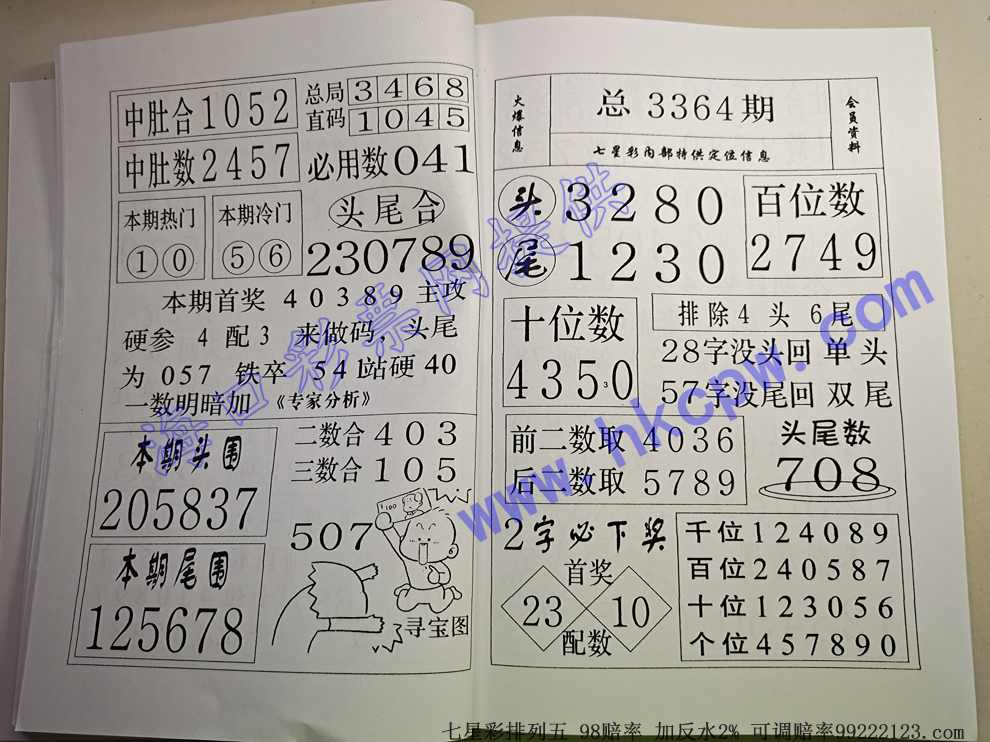 中肚合1052
总局 3468
直码 1045
中肚数2457
必用数041
本期热门
① ⓪
本期冷门
⑤ ⑥
头尾合
230789
本期首奖 40389 主攻
硬参 4 配 3 来做码，头尾
为 057 铁卒 541站硬 40
一数明暗加 《专家分析》
本期头围
205837
本期尾围
125678
二数合 403
三数合 105
507
100
寻宝图
火爆信息
总 3364期
七星彩内部特供定位信息
会员资料
头 3280
尾 1230
百位数
2749
十位数
4350
3
排除4 头 6尾
28字没头回 单头
57字没尾回 双尾
前二数取 4036
后二数取 5789
头尾数
708
2字必下奖
首奖
23 10
配数
千位124089
百位240587
十位123056
个位457890
海口彩票网提供
www.hkcpw.com
七星彩排列五 98赔率 加反水2% 可调赔率99222123.com